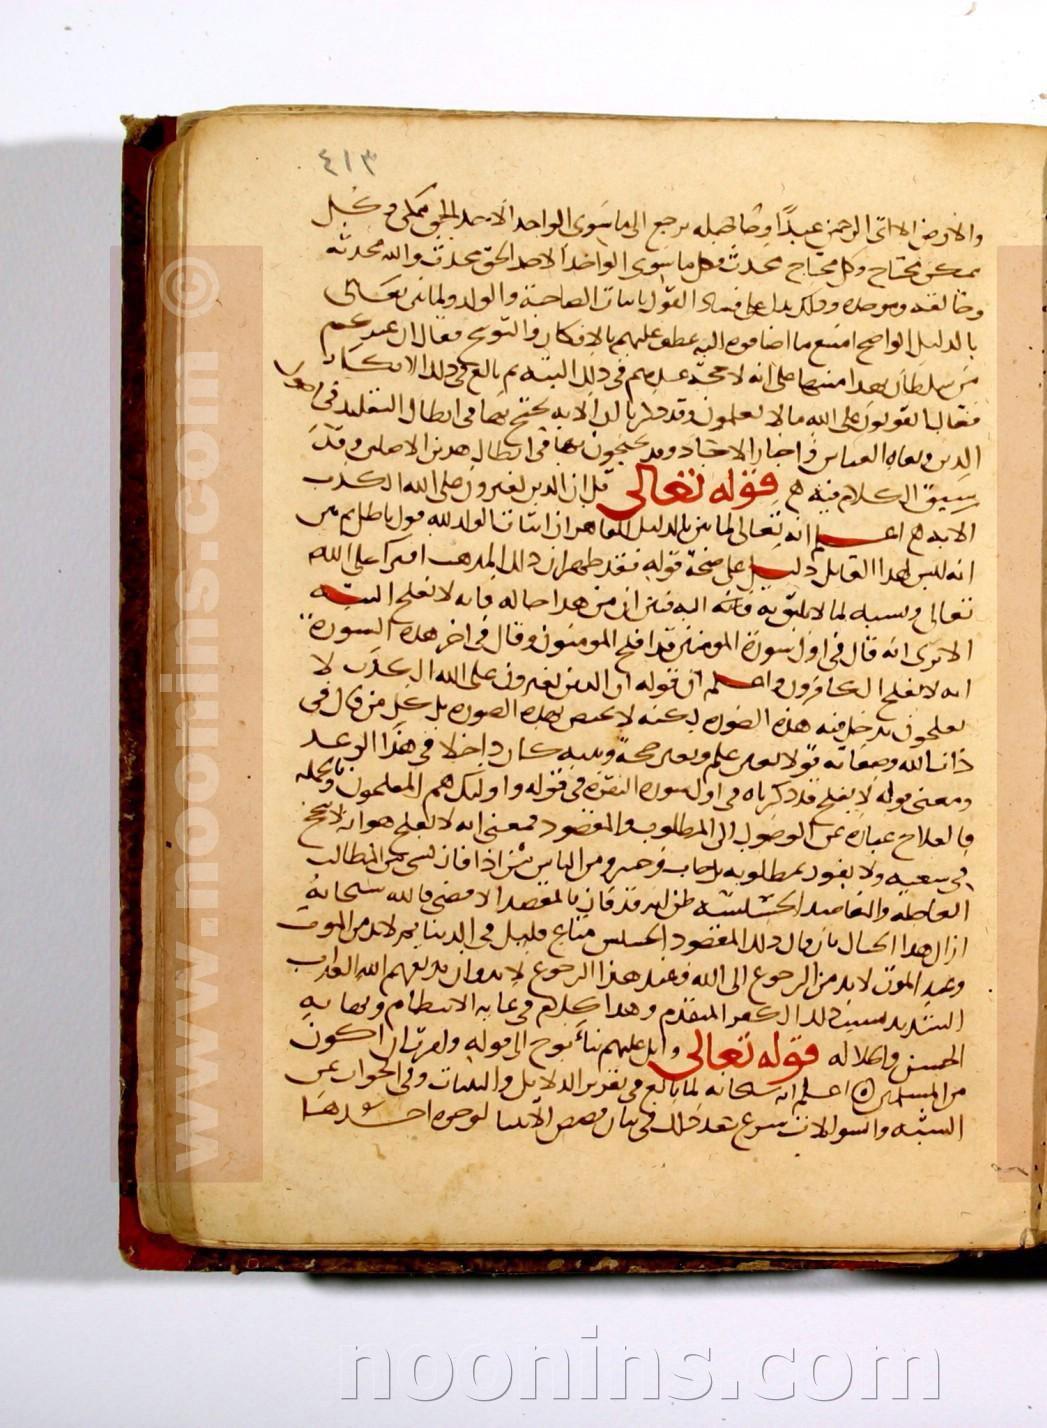 ٤١٣
والارض الا اتى الرحمن عبدًا وحاصله يرجع الى ما سوى الواحد الاحد الحق ممكن وكل
ممكن محتاج وكل محتاج محدث فكل ما سوى الواحد الاحد الحق محدث والله محدثه
وخالقه وموجده وذلك يدل على فساد القول باثبات الصاحبة والولد ولما بين تعالى
بالدليل الواضح امتنع ما اضافوه اليه عطف عليهم بالانكار والتوبيخ فقال ان عندكم
من سلطان بهذا منبها على انه لا حجة عندهم في ذلك البتة ثم بالغ في ذلك الانكار
فقال اتقولون على الله ما لا تعلمون وقد ذكرنا ان الاية يحتج بها في ابطال التقليد في اصول
الدين ونفاة القياس واخبار الاحاد قد يحتجون بها في ابطال هذين الاصلين وقد
سبق الكلام فيه هـ قوله تعالى قل ان الذين يفترون على الله الكذب
الاية هـ اعلم انه تعالى لما بين بالدليل القاهر ان اثبات الولد لله قول باطل ثم بين
انه ليس لهذا القايل دليل على صحة قوله فقد ظهر ان ذلك المذهب افترا على الله
تعالى ونسبه لما لا يليق به فانه اليه فبين ان من هذا حاله فانه لا يفلح البتة
الا ترى انه قال في اول سورة المومنين قد افلح المومنون وقال في اخر هذه السورة
انه لا يفلح الكافرون واعلم ان قوله ان الذين يفترون على الله الكذب لا
يفلحون يدخل فيه هذه الصورة لكنه لا يختص بهذه الصورة بل كل من قال في
ذات الله وصفاته قولا بغير علم وبغير حجة وبينة كان داخلا في هذا الوعيد
ومعنى قوله لا يفلح قد ذكرناه في اول سورة البقرة في قوله واولئك هم المفلحون وبالجملة
فالفلاح عبارة عن الوصول الى المطلوب والمقصود فمعنى انه لا يفلح هو انه لا ينجح
في سعيه ولا يفوز بمطلوبه بل خاب وخسر ومن الناس من اذا فاز بشى من المطالب
العاجلة والمقاصد الخسيسة ظن انه قد فاز بالمقصد الاقصى فالله سبحانه
ازال هذا الخيال بان قال ذلك المقصود الخسيس متاع قليل في الدنيا ثم لا بد من الموت
وعند الموت لا بد من الرجوع الى الله وعند هذا الرجوع لا بد وان يذيقهم الله العذاب
الشديد بسبب ذلك الكفر المتقدم وهذا كلام في غاية الانتظام ونهاية
الحسن والجلالة قوله تعالى واتل عليهم نبأ نوح الى قوله وامرت ان اكون
من المسلمين اعلم انه سبحانه لما بالغ في تقرير الدلايل والبينات وفي الجواب عن
الشبه والسوالات شرع بعد ذلك في بيان قصص الانبيا لوجوه احدها
www.noonins.com ©
noonins.com